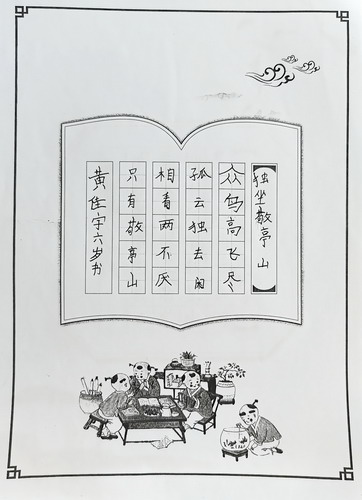 独坐敬亭山
众鸟高飞尽
孤云独去闲
相看两不厌
只有敬亭山
黄佳宇六岁书